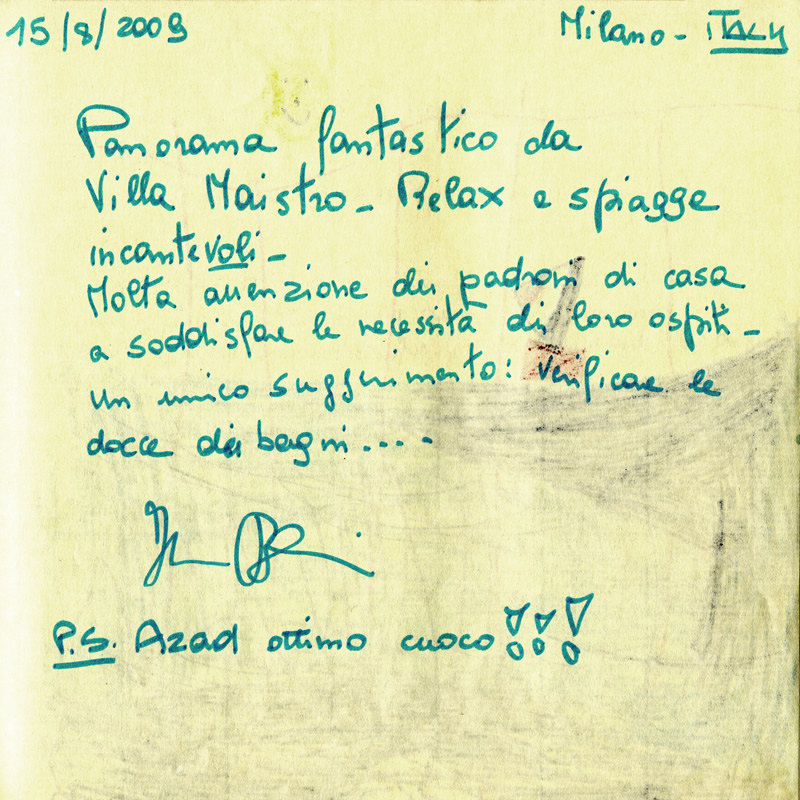 15/8/2009 Milano - ITALY
Panorama fantastico da
Villa Maistro - Relax e spiagge
incantevoli -
Molta attenzione dei padroni di casa
a soddisfare le necessità dei loro ospiti -
un unico suggerimento: Verificare le
docce dei bagni....
P.S. Azad ottimo cuoco !!!